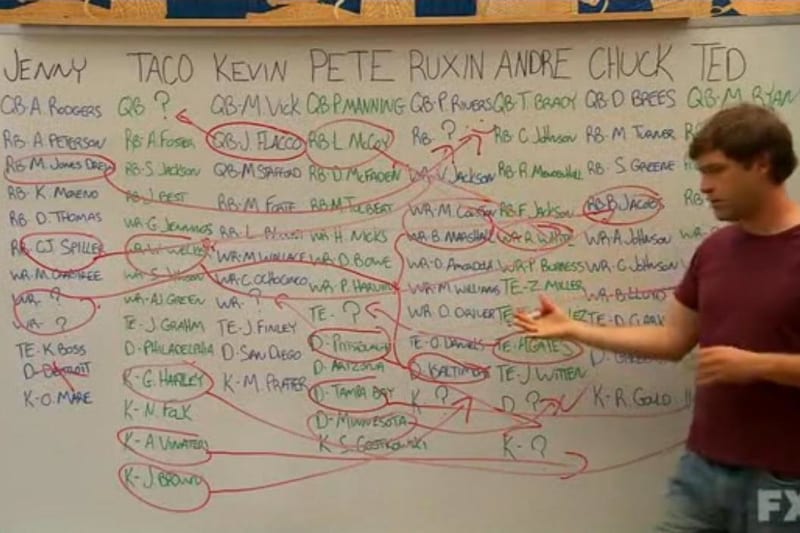 JENNY TACO KEVIN PETE RUXIN ANDRE CHUCK TED
QB-A. RODGERS QB ? QB-M. VICK QB P. MANNING QB-P. RIVERS QB-T. BRADY QB-D. BREES QB-M. RYAN
RB-A. PETERSON RB-A. FOSTER QB-J. FLACCO RB-L. McCOY RB-? RB-C. JOHNSON RB-M. TURNER
RB-M. JONES DREW RB-S. JACKSON QB-M. STAFFORD RB-D. McFADEN WR-V. JACKSON RB-R. RB-S. GREENE
RB-K. MORENO RB-J. BEST RB-M. FORTE RB M. TOLBERT WR-M. RB-F. JACKSON RB-B. JACOBS
RB D. THOMAS WR-G. JENNINGS RB-L. WR-H. NICKS WR-B. MARSHALL WR-R. WHITE WR-A. JOHNSON
RB-CJ. SPILLER WR-W. WELKER WR-M. WALLACE WR-D. BOWE WR-D. WR-P. BURRESS WR-C. JOHNSON
WR-M. CRABTREE WR-S. WR-C. OCHOCINCO WR-P. HARVIN WR-M. WILLIAMS TE-Z. MILLER WR-B. LLOYD
WR-? WR-AJ GREEN WR-? TE-? WR D. DRIVER TE- TE-D. CLARK
WR-? TE-J. GRAHM TE-J. FINLEY D-PITTSBURGH TE-O. DANIELS TE-A. GATES
TE-K BOSS D-PHILADELPHIA D-SAN DIEGO D-ARIZONA D-BALTIMORE TE-J. WITTEN
D-DETROIT K-G. HARTLEY K-M. PRATER D-TAMPA BAY K ? D ? K-R. GOLD
K-O. MARE K-N. FOLK D-MINNESOTA K-?
K-A. VINATERI K S. GOSTKOWSKI
K-J. BROWN
FX